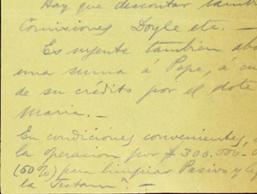 Hay que descontar tambi
Comisiones Doyle etc. -
Es urgente tambien abo
una suma á Pepe, á cu
de su crédito por el dote
Maria. -
En condiciones convenientes,
la operacion por $300,000.-
(50%) para limpiar Pasivos y
la